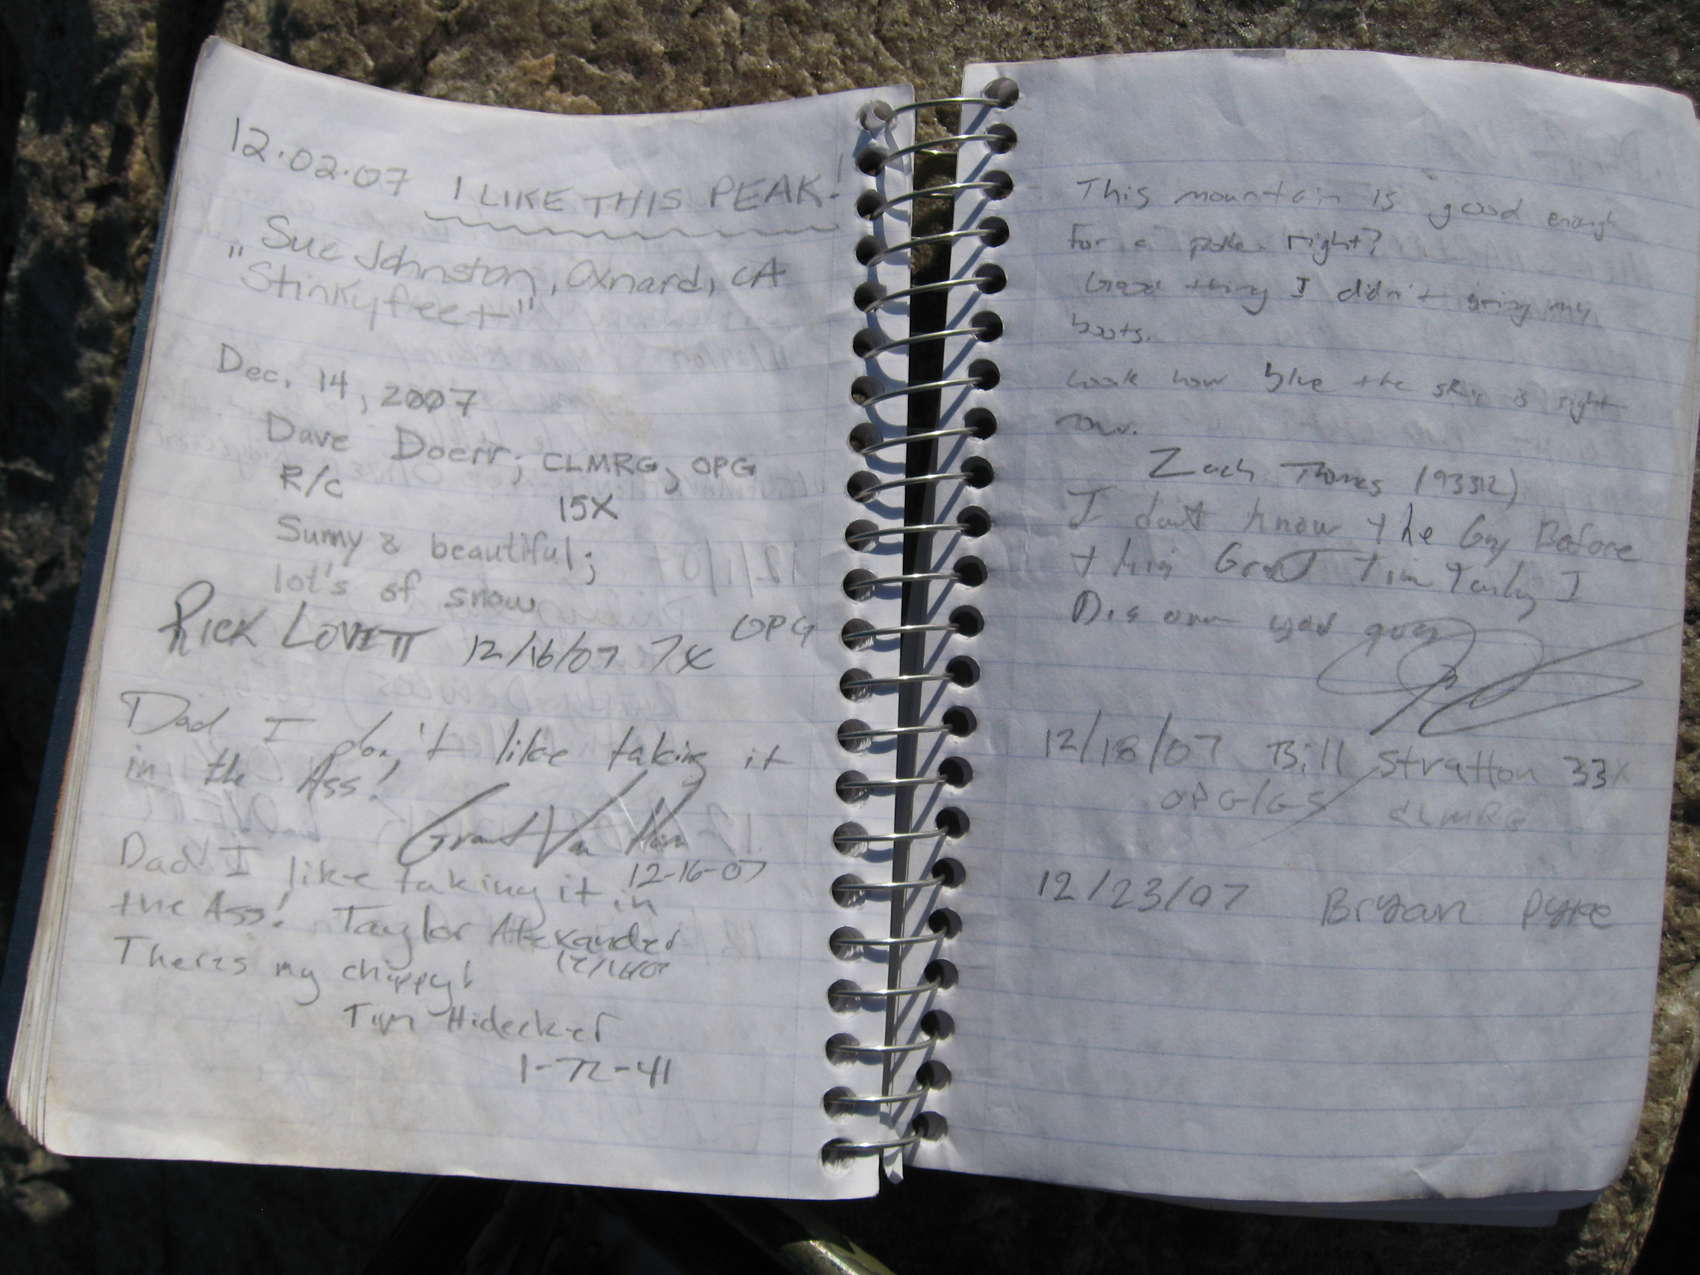 12.02.07 I LIKE THIS PEAK!
Sue Johnston, Oxnard, CA
"Stinkyfeet"
Dec. 14, 2007
Dave Doerr; CLMRG, OPG
R/C 15X
Sunny & beautiful;
lot's of snow
RICK LOVETT 12/16/07 7X OPG
Dad I don't like taking it
in the Ass!
Grant Van
12-16-07
Dad I like taking it in
the Ass! Taylor Alexander
12/16/07
Theres my chippy!
Tim Hidecker
1-72-41
This mountain is good enough
for a right?
Good thing I didn't bring my
boots.
Look how blue the sky is right
now.
Zach Thomas (93312)
I don't know the Guy Before
this
Dis own you guys
12/18/07 Bill Stratton 33X
OPG/GS CLMRG
12/23/07 Bryan Pyke